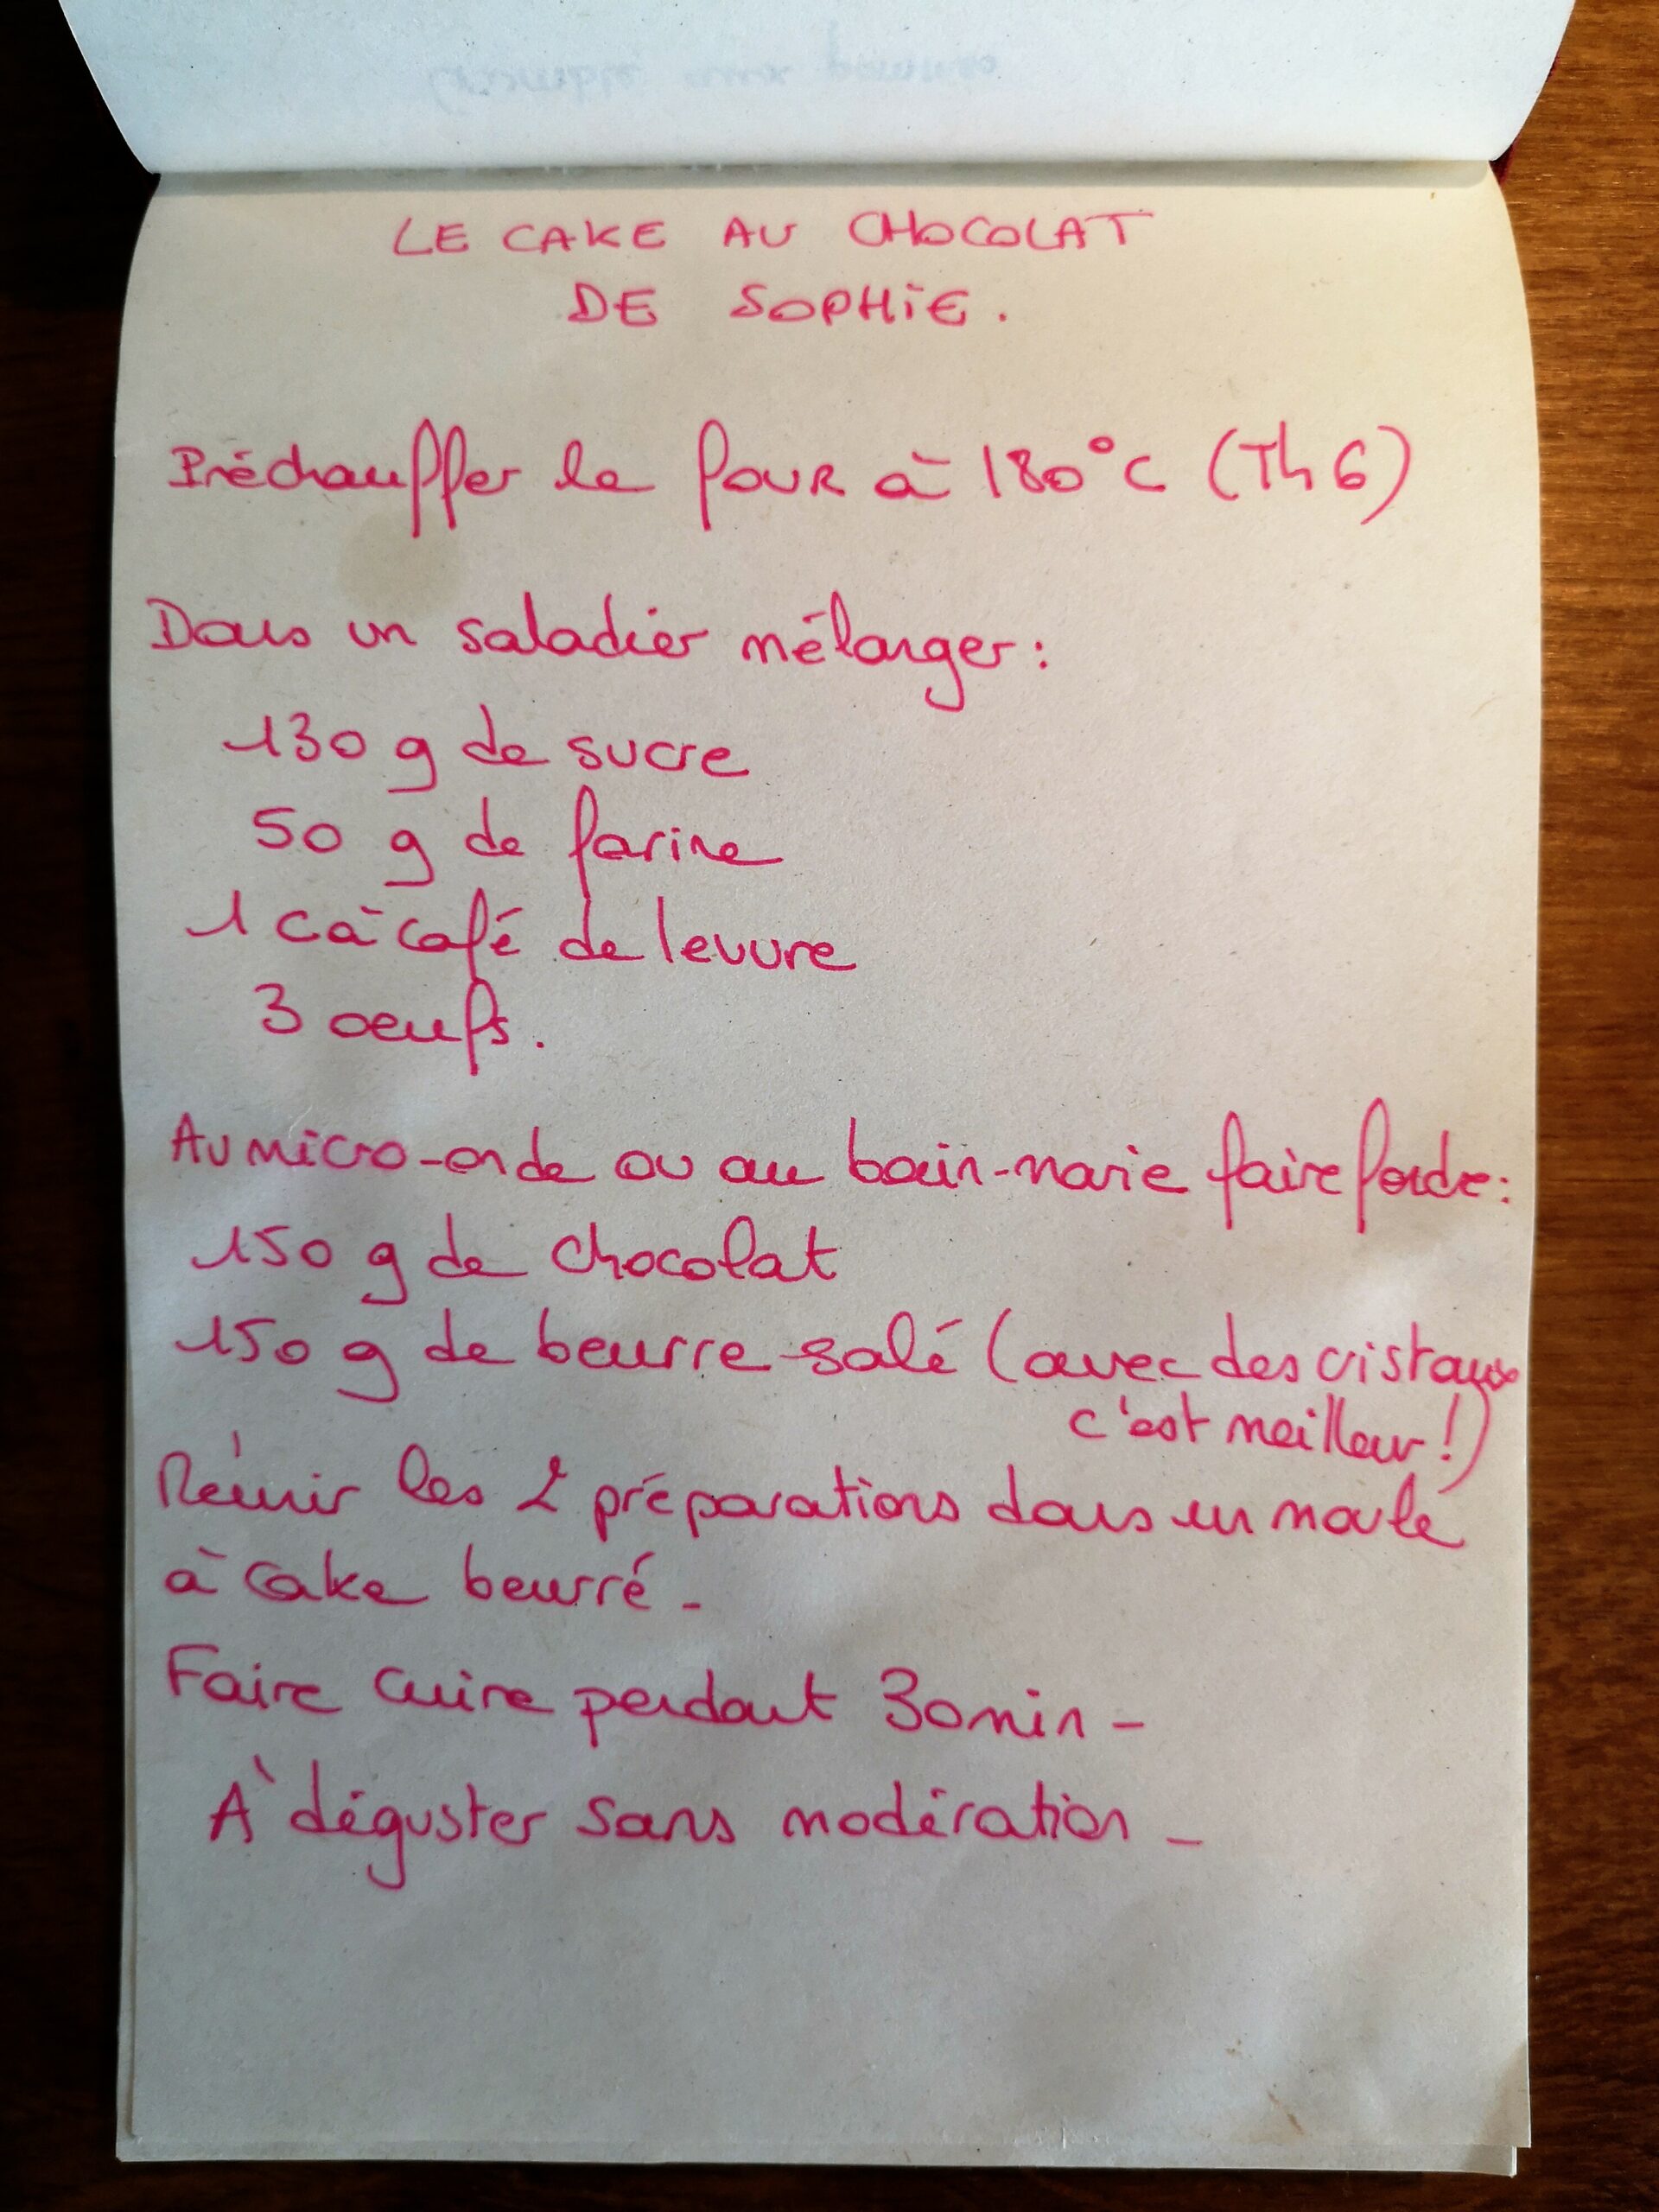 LE CAKE AU CHOCOLAT
DE SOPHIE.
Préchauffer le four à 180°C (Th 6)
Dans un saladier mélanger :
130 g de sucre
50 g de farine
1 c à café de levure
3 oeufs.
Au micro-onde ou au bain-marie faire fondre :
150 g de chocolat
150 g de beurre salé (avec des cristaux
c'est meilleur !)
Réunir les 2 préparations dans un moule
à cake beurré -
Faire cuire pendant 30 min -
A déguster sans modération -